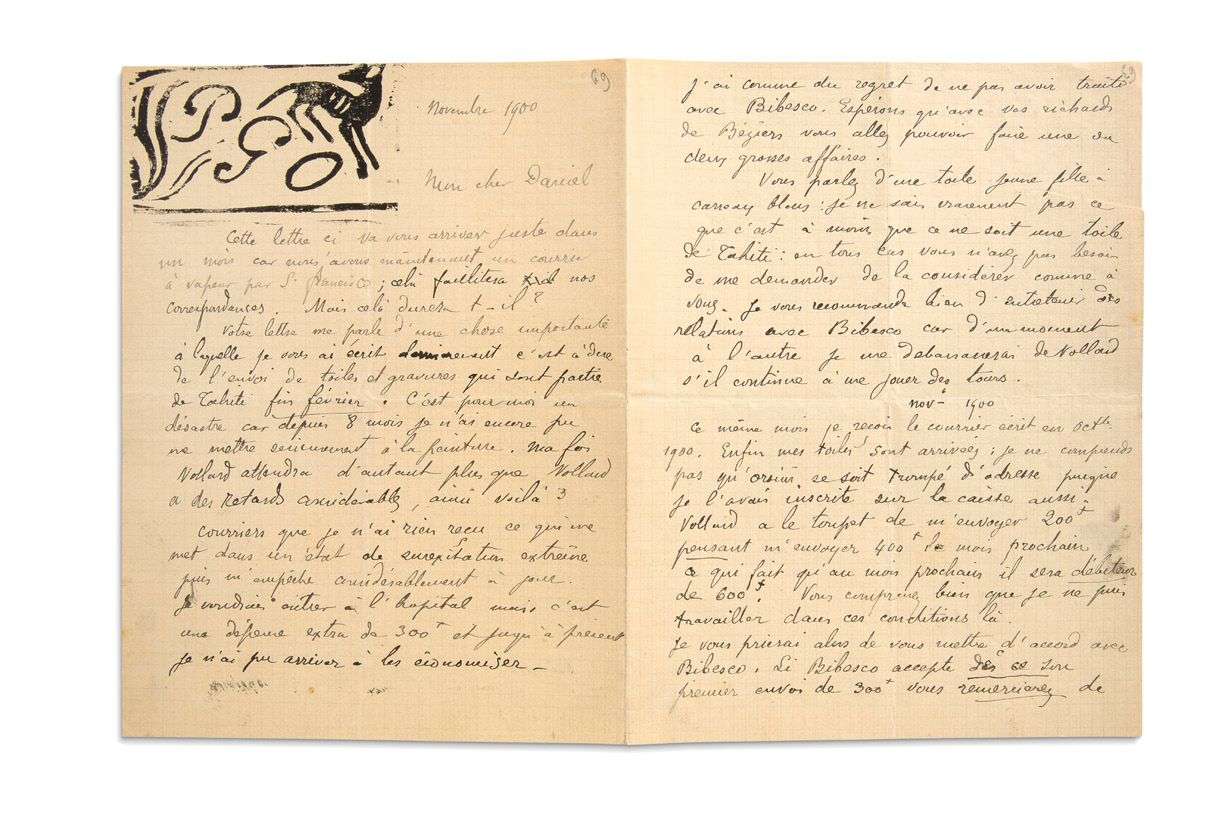 PGO
69
Novembre 1900
Mon cher Daniel
Cette lettre ci va vous arriver juste dans
un mois car nous avons maintenant un courrier
à vapeur par S. Francisco; celà facilitera nos
correspondances. Mais celà durera t-il ?
Votre lettre me parle d'une chose importante
à laquelle je vous ai écrit dernièrement c'est à dire
de l'envoi de toiles et gravures qui sont parties
de Tahiti fin février. C'est pour moi un
désastre car depuis 8 mois je n'ai encore pu
me mettre sérieusement à la peinture. Ma foi
Vollard attendra d'autant plus que Vollard
a des retards considérables, ainsi voilà 3
Courriers que je n'ai rien reçu ce qui me
met dans un état de surexcitation extrême
puis m'empêche considérablement
Je voudrais entrer à l'hopital mais c'est
une dépense extra de 300f et jusqu'à présent
je n'ai pu arriver à les économiser -
69
J'ai comme du regret de ne pas avoir traité
avec Bibesco. Espérons qu'avec vos richards
de Béziers vous allez pouvoir faire une ou
deux grosses affaires.
Vous parlez d'une toile jeune fille à
carreaux bleus : je ne sais vraiment pas ce
que c'est à moins que ce ne soit une toile
de Tahiti : en tous cas vous n'avez pas besoin
de me demander de la considérer comme à
vous. Je vous recommande bien d'entretenir des
relations avec Bibesco car d'un moment
à l'autre je me débarrasserai de Vollard
s'il continue à me jouer des tours.
nov- 1900
Ce même mois je reçois le courrier écrit en octbre
1900. Enfin mes toiles sont arrivées ; je ne comprends
pas qu' se soit trompé d'adresse puisque
je l'avais inscrite sur la caisse aussi.
Vollard a le toupet de m'envoyer 200f
pensant m'envoyer 400f le mois prochain
ce qui fait qu'au mois prochain il sera débiteur
de 600f. Vous comprenez bien que je ne puis
travailler dans ces conditions là.
Je vous prierai alors de vous mettre d'accord avec
Bibesco. Si Bibesco accepte dès ce son
premier envoi de 300f vous remercierez de